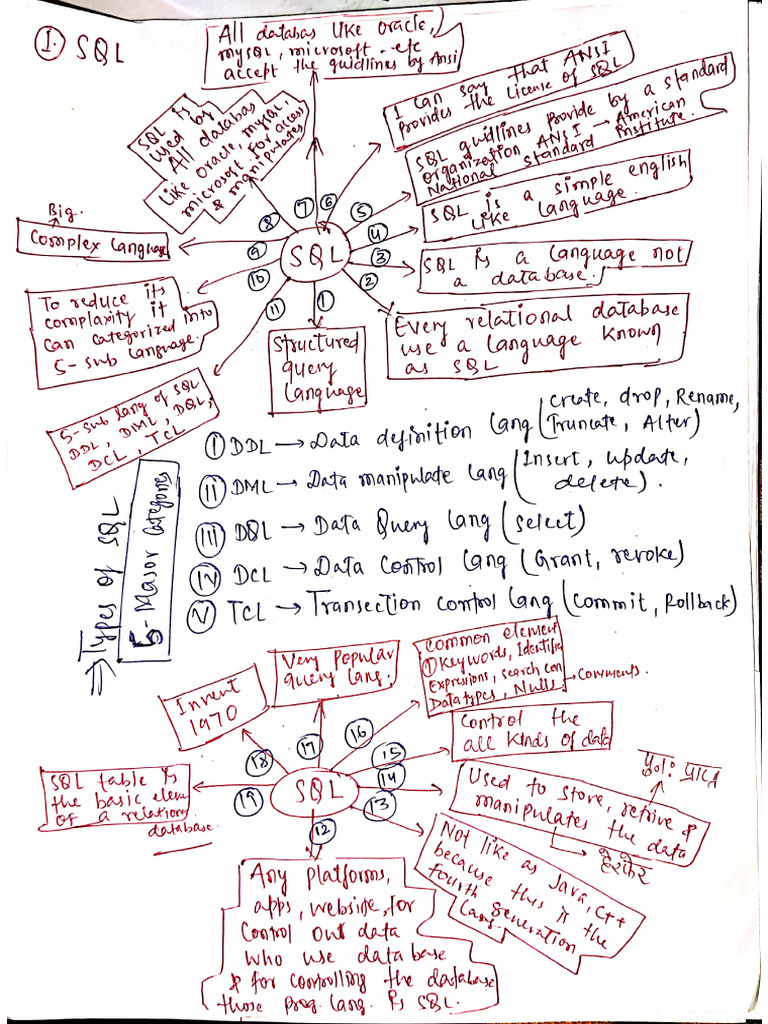 ① SQL
All databas like oracle,
mysql, microsoft - etc
accept the guidlines by Ansi
I can say that ANSI
provides the License of SQL
SQL guidlines provide by a standard
organization ANSI → American
National standard institute.
SQL is a simple english
like language.
SQL is a language not
a database.
Every relational database
use a language known
as SQL
Structured
query
Language
SQL is
used by
All databas
like oracle, mysql,
microsoft for access
& manipulates
Big.
Complex language
To reduce its
complaxity it
can categorized into
5-sub language.
5-sub lang of SQL
DDL, DML, DQL,
DCL, TCL
SQL
① ② ③ ④ ⑤ ⑥ ⑦ ⑧ ⑨ ⑩ ⑪
⇒ Types of SQL
5-Masor categories
ⓘ DDL → Data definition lang (create, drop, Rename,
Truncate, Alter)
ii DML → Data manipulate lang (Insert, update,
delete).
iii DQL → Data Query lang (select)
iv DCL → Data Control lang (Grant, revoke)
v TCL → Transection control lang (Commit, Rollback)
Common element
① Keywords, Identifie
Expressions, search con
Datatypes, Nulls → Comments.
Very popular
query lang.
Invent
1970
Control the
all kinds of data
Used to store, retrive &
manipulates the data
पुनः प्राप्त
हेरफेर
SQL table is
the basic elem
of a relation
database.
SQL
⑫ ⑬ ⑭ ⑮ ⑯ ⑰ ⑱ ⑲
Not like as Java, C++
because this is the
fourth generation
lang.
Any platforms,
apps, website, for
control out data
who use database
& for controlling the dastabase
those prog. lang. is SQL.